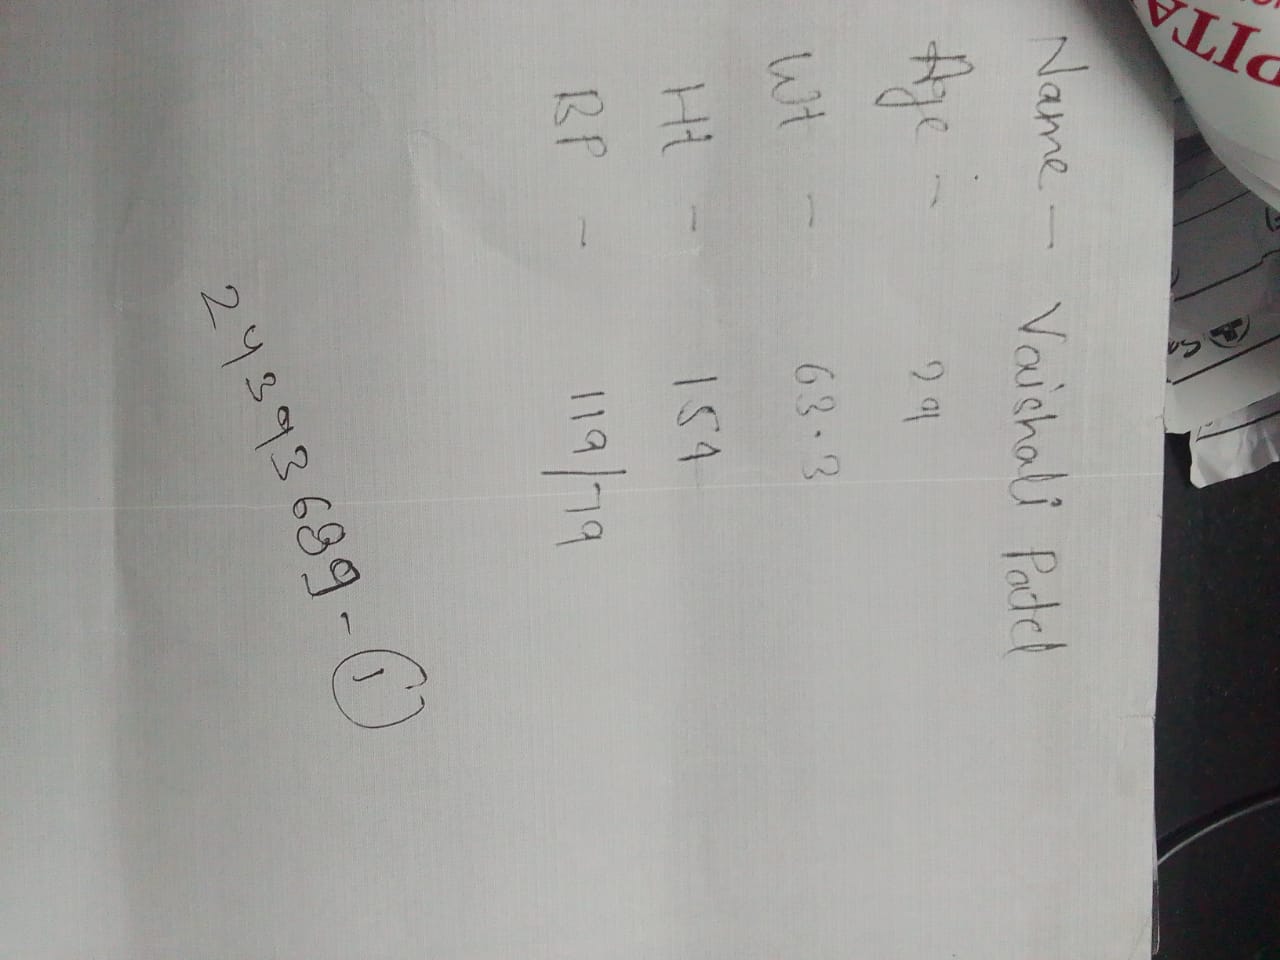 Name - Vaishali Patel
Age - 29
Wt - 63.3
Ht - 159
BP - 119/79
24393689 - 1
PITA